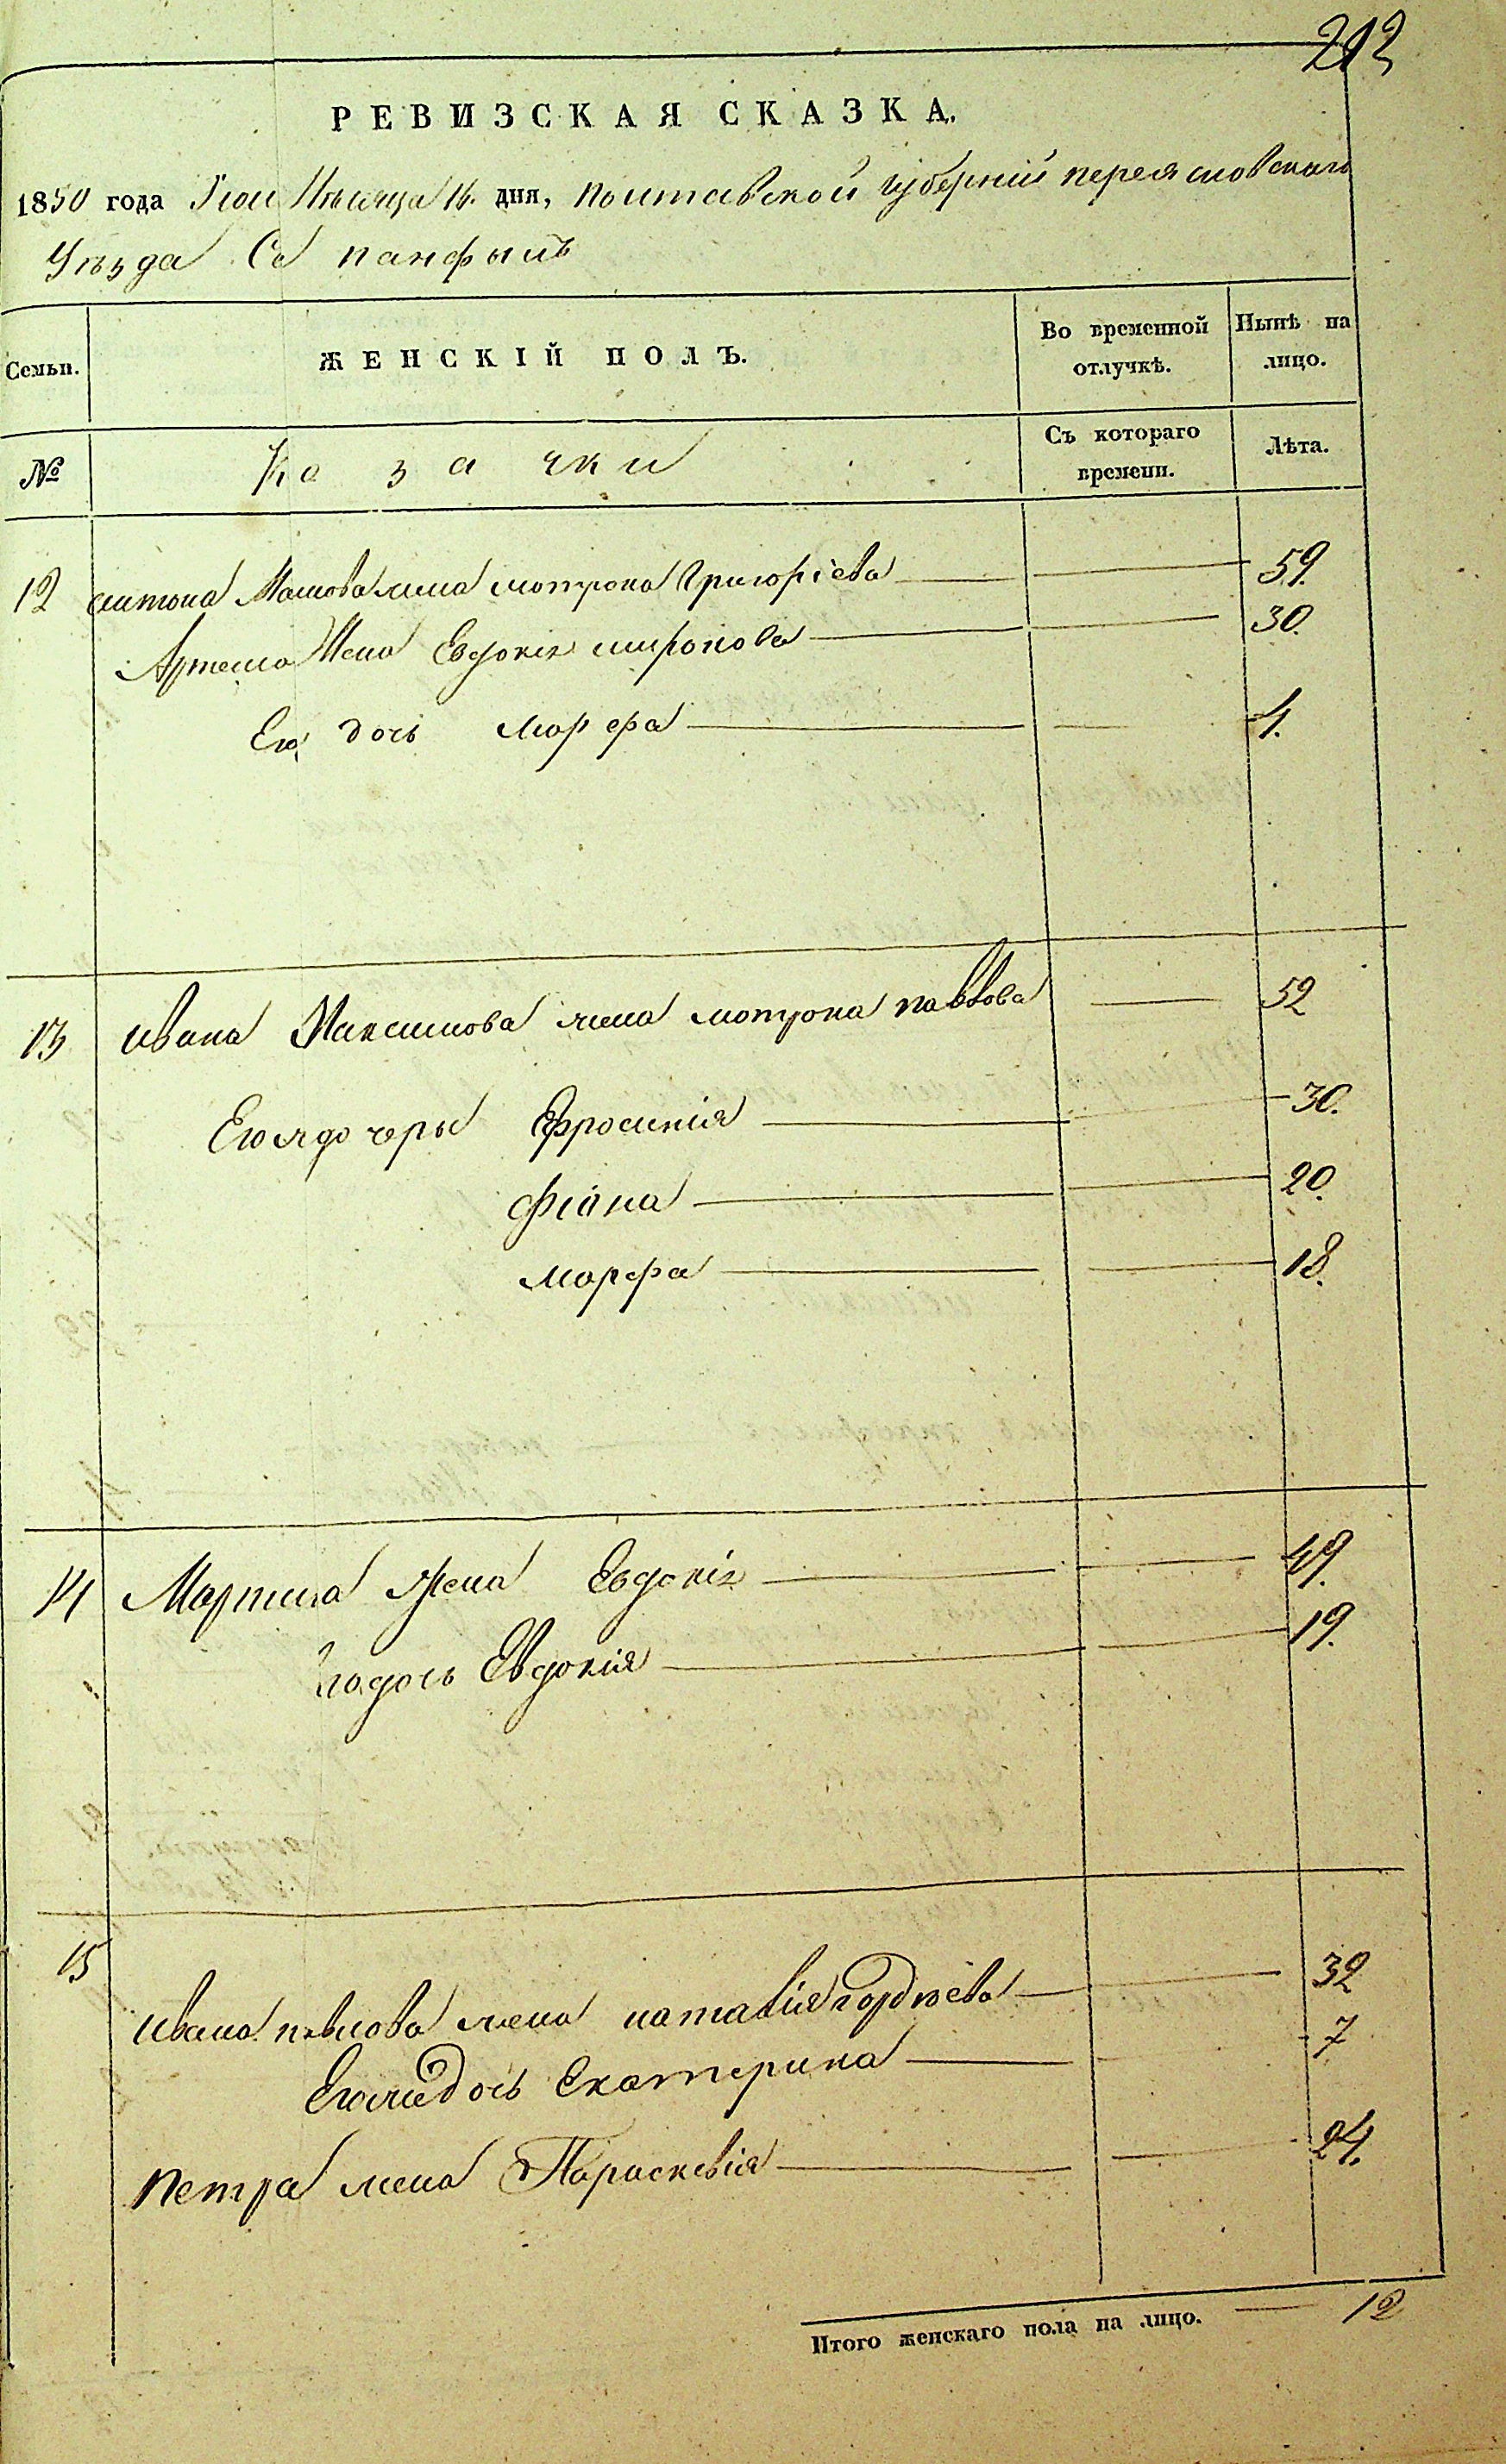 212
РЕВИЗСКАЯ СКАЗКА.
1850 года Мѣсяца дня, Полтавской губерніи переясловскаго
Уѣзда Се панфылъ
Семьи. ЖЕНСКІЙ ПОЛЪ. Во временной отлучкѣ. Нынѣ на лицо.
№ Казачки Съ котораго времени. Лѣта.
12 антона жена мотрона Григоріева 59.
Артема жена Евдокія миронова 30.
Ею дочь марфа
13 ивана Максимова жена мотрона павлова 52
Егожа дочеры Ефросинія 30.
Фіона 20.
марфа 18.
14 Мартина жена Евдокія 49.
дочь Евдокія 19.
15
ивана павлова жена наталія гордѣева 32
Егожа дочь Екатерина 7
петра жена Параскевія 24.
Итого женскаго пола на лицо. 12